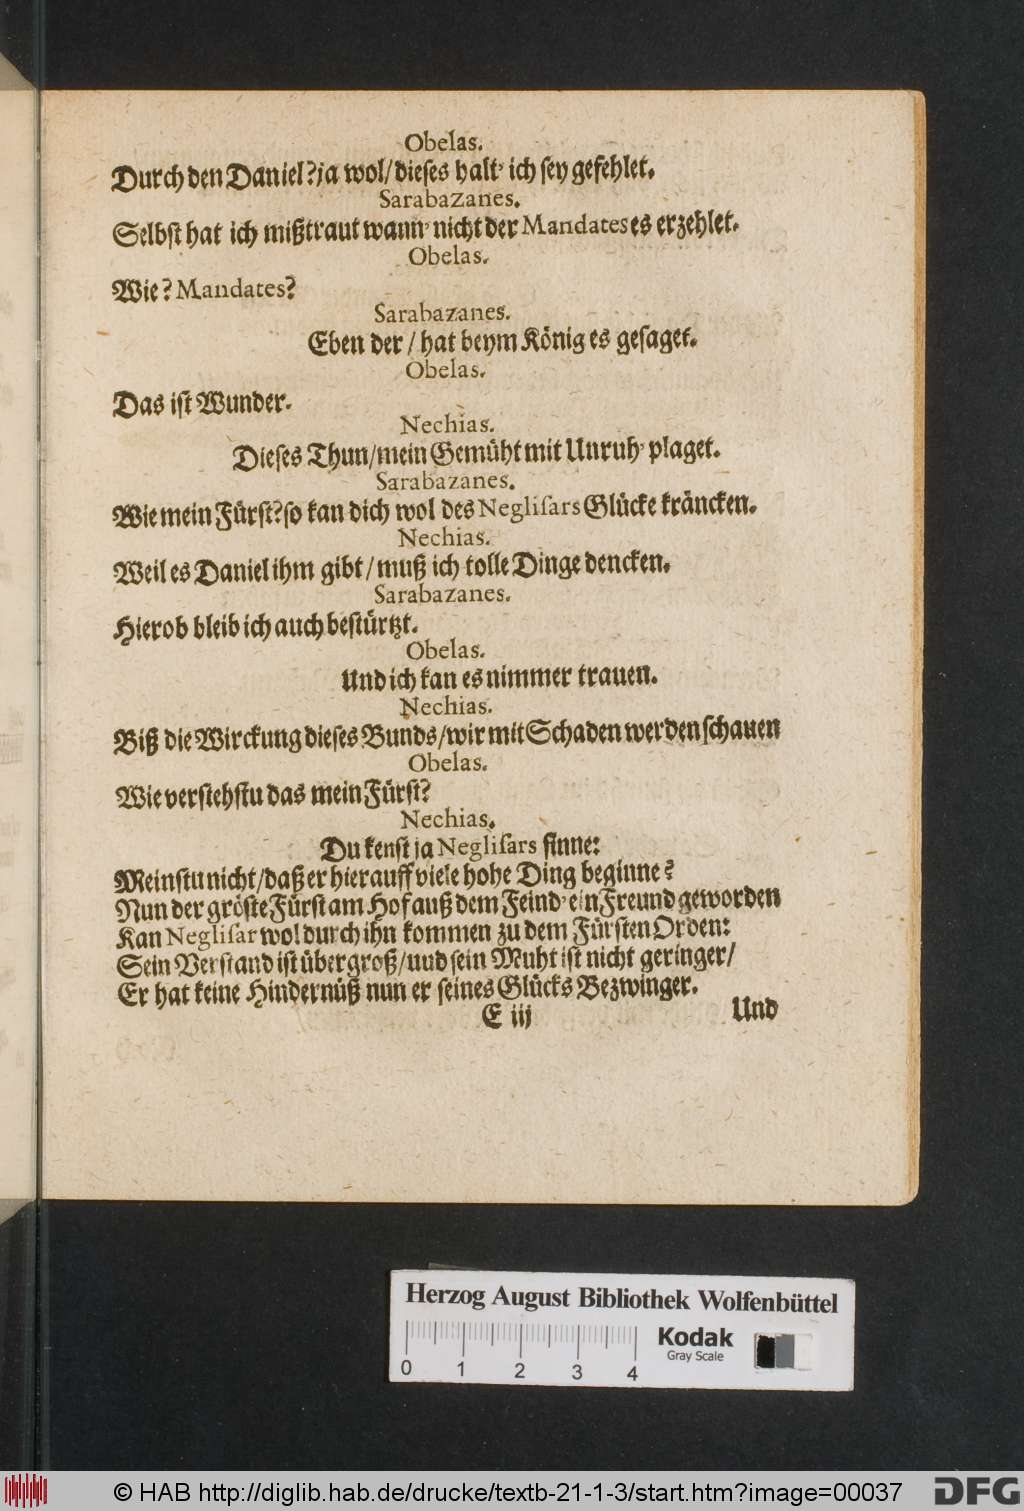 Obelas.
Durch den Daniel? ja wol/ dieses halt' ich sey gefehlet.
Sarabazanes.
Selbst hat ich mißtraut wann' nicht der Mandates es erzehlet.
Obelas.
Wie? Mandates?
Sarabazanes.
Eben der / hat beym König es gesaget.
Obelas.
Das ist Wunder.
Nechias.
Dieses Thun/ mein Gemüht mit Unruh' plaget.
Sarabazanes.
Wie mein Fürst? so kan dich wol des Neglisars Glücke kräncken.
Nechias.
Weil es Daniel ihm gibt / muß ich tolle Dinge dencken.
Sarabazanes.
Hierob bleib ich auch bestürtzt.
Obelas.
Und ich kan es nimmer trauen.
Nechias.
Biß die Wirckung dieses Bunds/ wir mit Schaden werden schauen
Obelas.
Wie verstehstu das mein Fürst?
Nechias.
Du kenst ja Neglisars sinne:
Meinstu nicht/ daß er hierauff viele hohe Ding beginne?
Nun der gröste Fürst am Hof auß dem Feind' ein Freund geworden
Kan Neglisar wol durch ihn kommen zu dem Fürsten Orden:
Sein Verstand ist über groß/ uud sein Muht ist nicht geringer/
Er hat keine Hindernüß nun er seines Glücks Bezwinger.
E iij
Und
Herzog August Bibliothek Wolfenbüttel
Kodak
Gray Scale
0 1 2 3 4
© HAB http://diglib.hab.de/drucke/textb-21-1-3/start.htm?image=00037
DFG